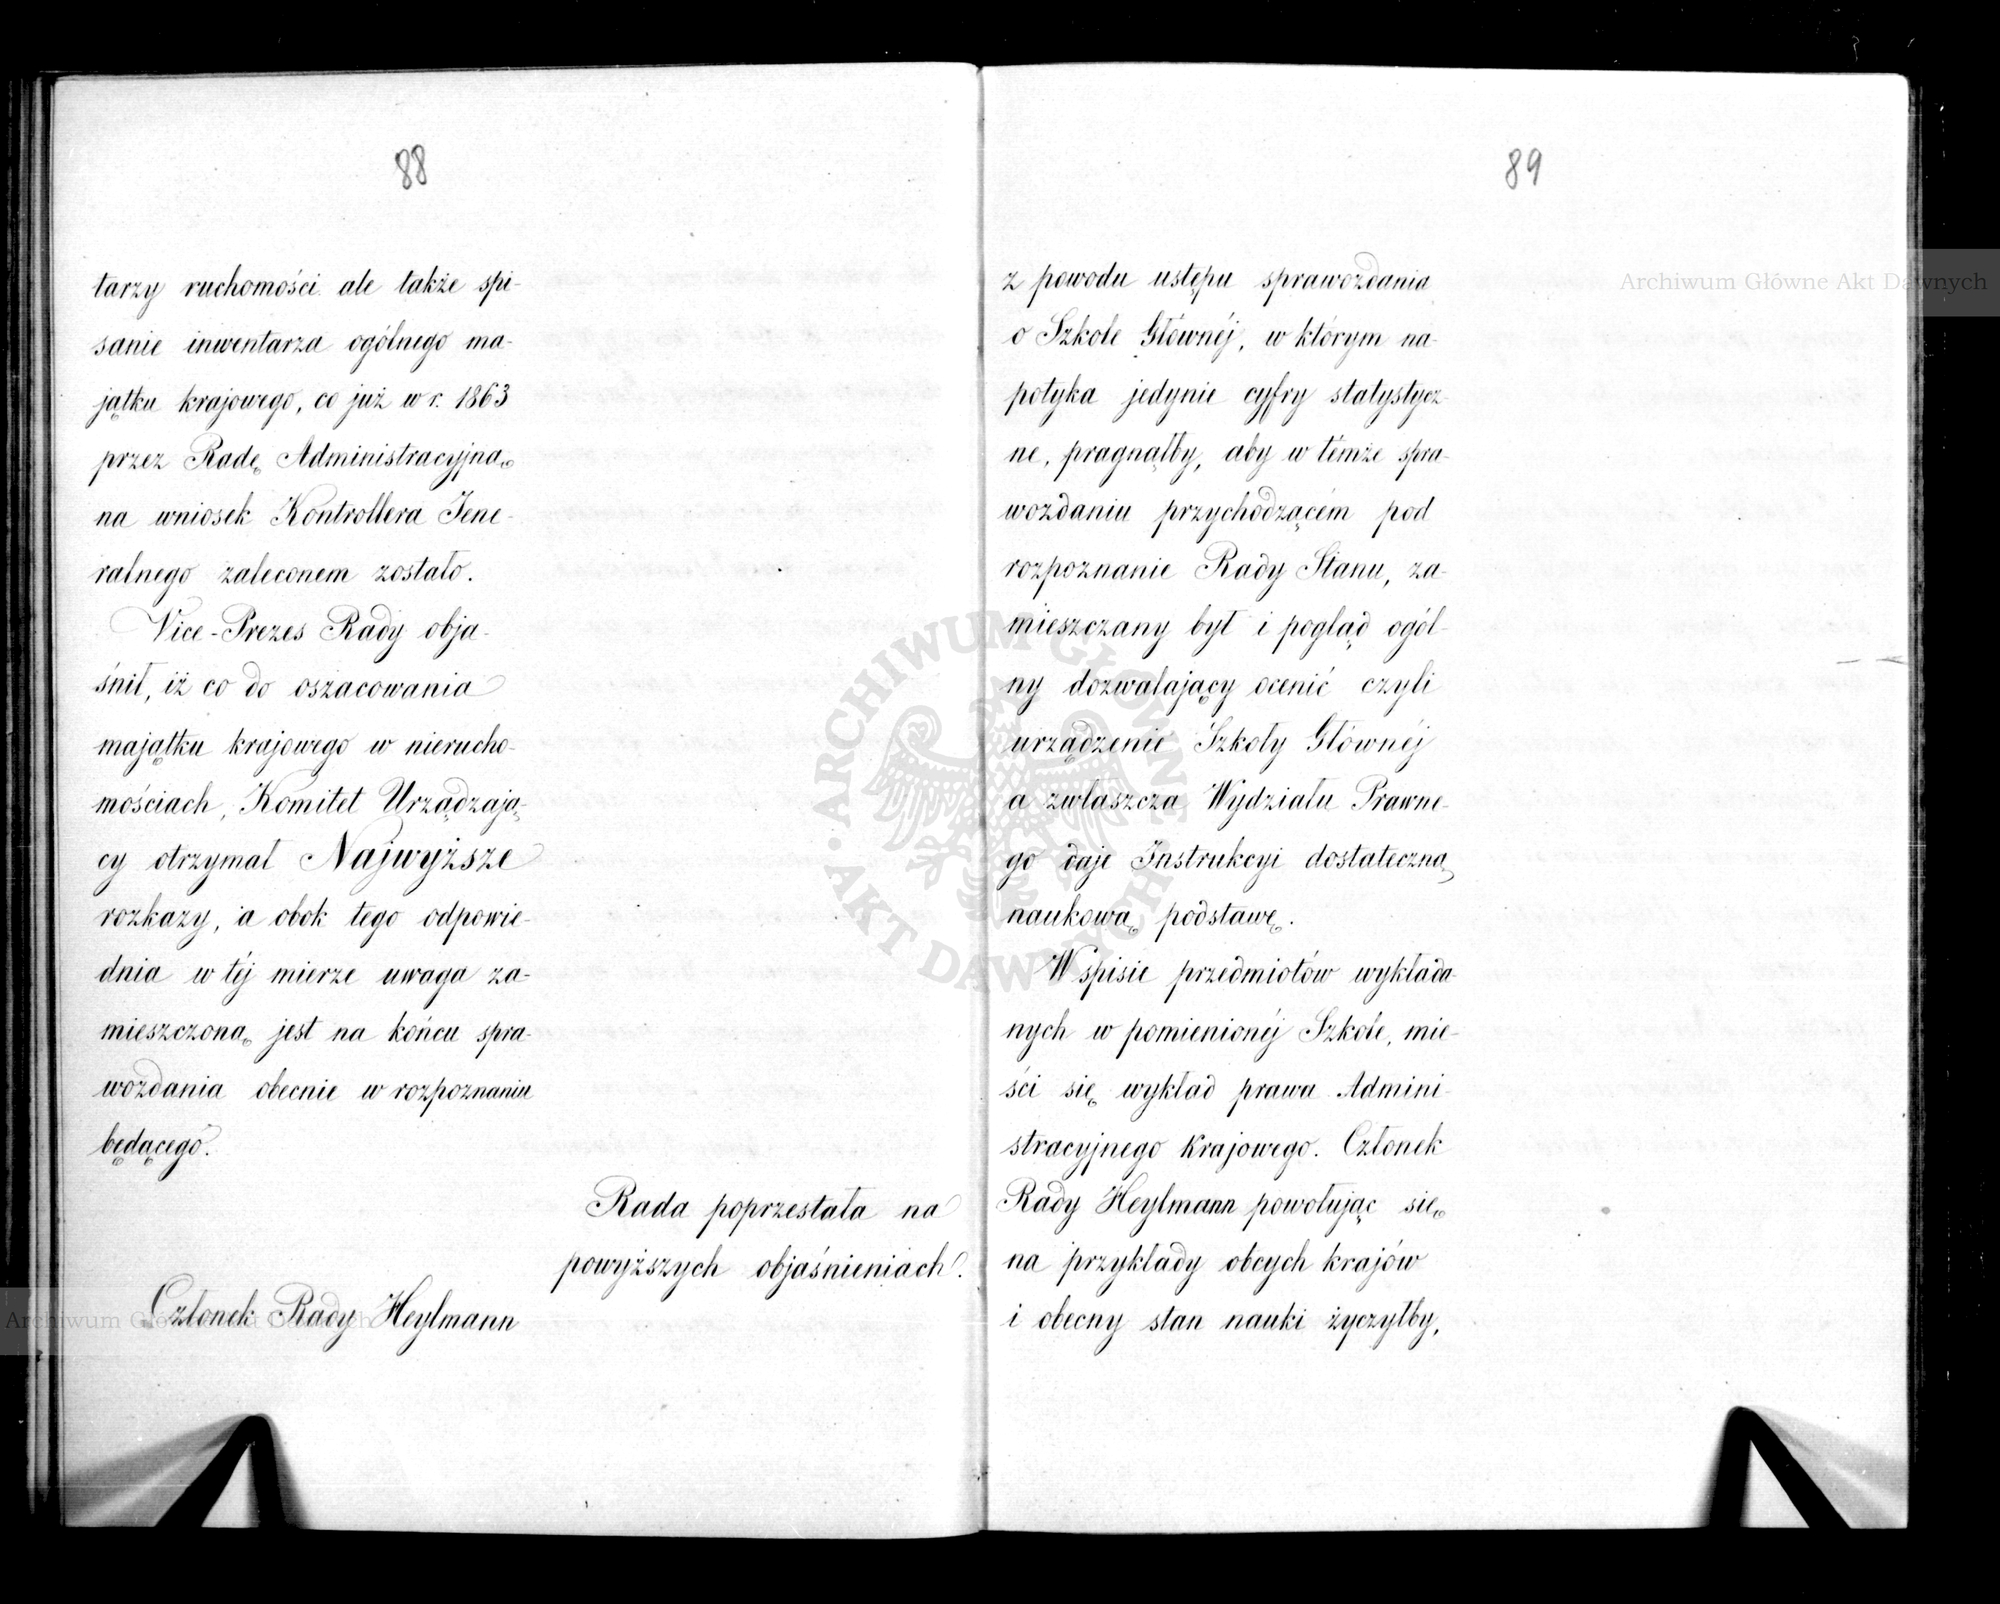 88
tarzy ruchomości ale także spi-
sanie inwentarza ogólnego ma-
jątku krajowego, co już w r. 1863
przez Radę Administracyjną
na wniosek Kontrollera Jene-
ralnego zaleconem zostało.
Vice-Prezes Rady obja-
śnił, iż co do oszacowania
majątku krajowego w nierucho-
mościach, Komitet Urządzają-
cy otrzymał Najwyższe
rozkazy, a obok tego odpowie-
dnia w téj mierze uwaga za-
mieszczoną jest na końcu spra-
wozdania obecnie w rozpoznaniu
będącego.
Rada poprzestała na
powyższych objaśnieniach.
Członek Rady Heylmann
89
z powodu ustępu sprawozdania
o Szkole Głównéj, w którym na-
potyka jedynie cyfry statystycz-
ne, pragnąłby, aby w témże spra-
wozdaniu przychodzącém pod
rozpoznanie Rady Stanu, za-
mieszczany był i pogląd ogól-
ny dozwalający ocenić czyli
urządzenie Szkoły Głównéj
a zwłaszcza Wydziału Prawne-
go daje Instrukcyi dostateczną
naukową podstawę.
W spisie przedmiotów wykłada-
nych w pomienionéj Szkole, mie-
ści się wykład prawa Admini-
stracyjnego Krajowego. Członek
Rady Heylmann powołując się
na przykłady obcych krajów
i obecny stan nauki życzyłby,
Archiwum Główne Akt Dawnych
Archiwum Główne Akt Dawnych
ARCHIWUM GŁÓWNE AKT DAWNYCH